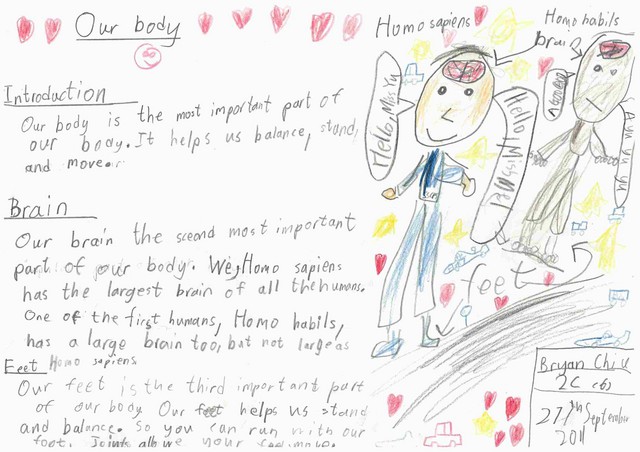 Our body
Introduction
Our body is the most important part of
our body. It helps us balance, stand,
and move.
Brain
Our brain the second most important
part of our body. We, Homo sapiens
has the largest brain of all the humans.
One of the first humans, Homo habils,
has a large brain too, but not large as
Homo sapiens
Feet
Our feet is the third important part
of our body. Our feet helps us stand
and balance. So you can run with our
foot. Joints your feet move.
Homo sapiens
Homo habils
brain
Hello, Miss Yu
Hello Miss
feet
Bryan Chiu
2C (6)
September
2011